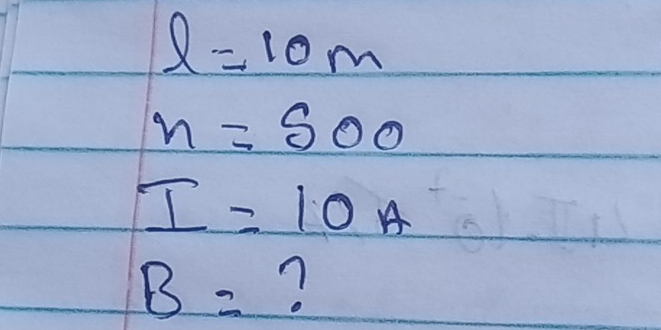 l = 10 m
n = 500
I = 10 A
B = ?